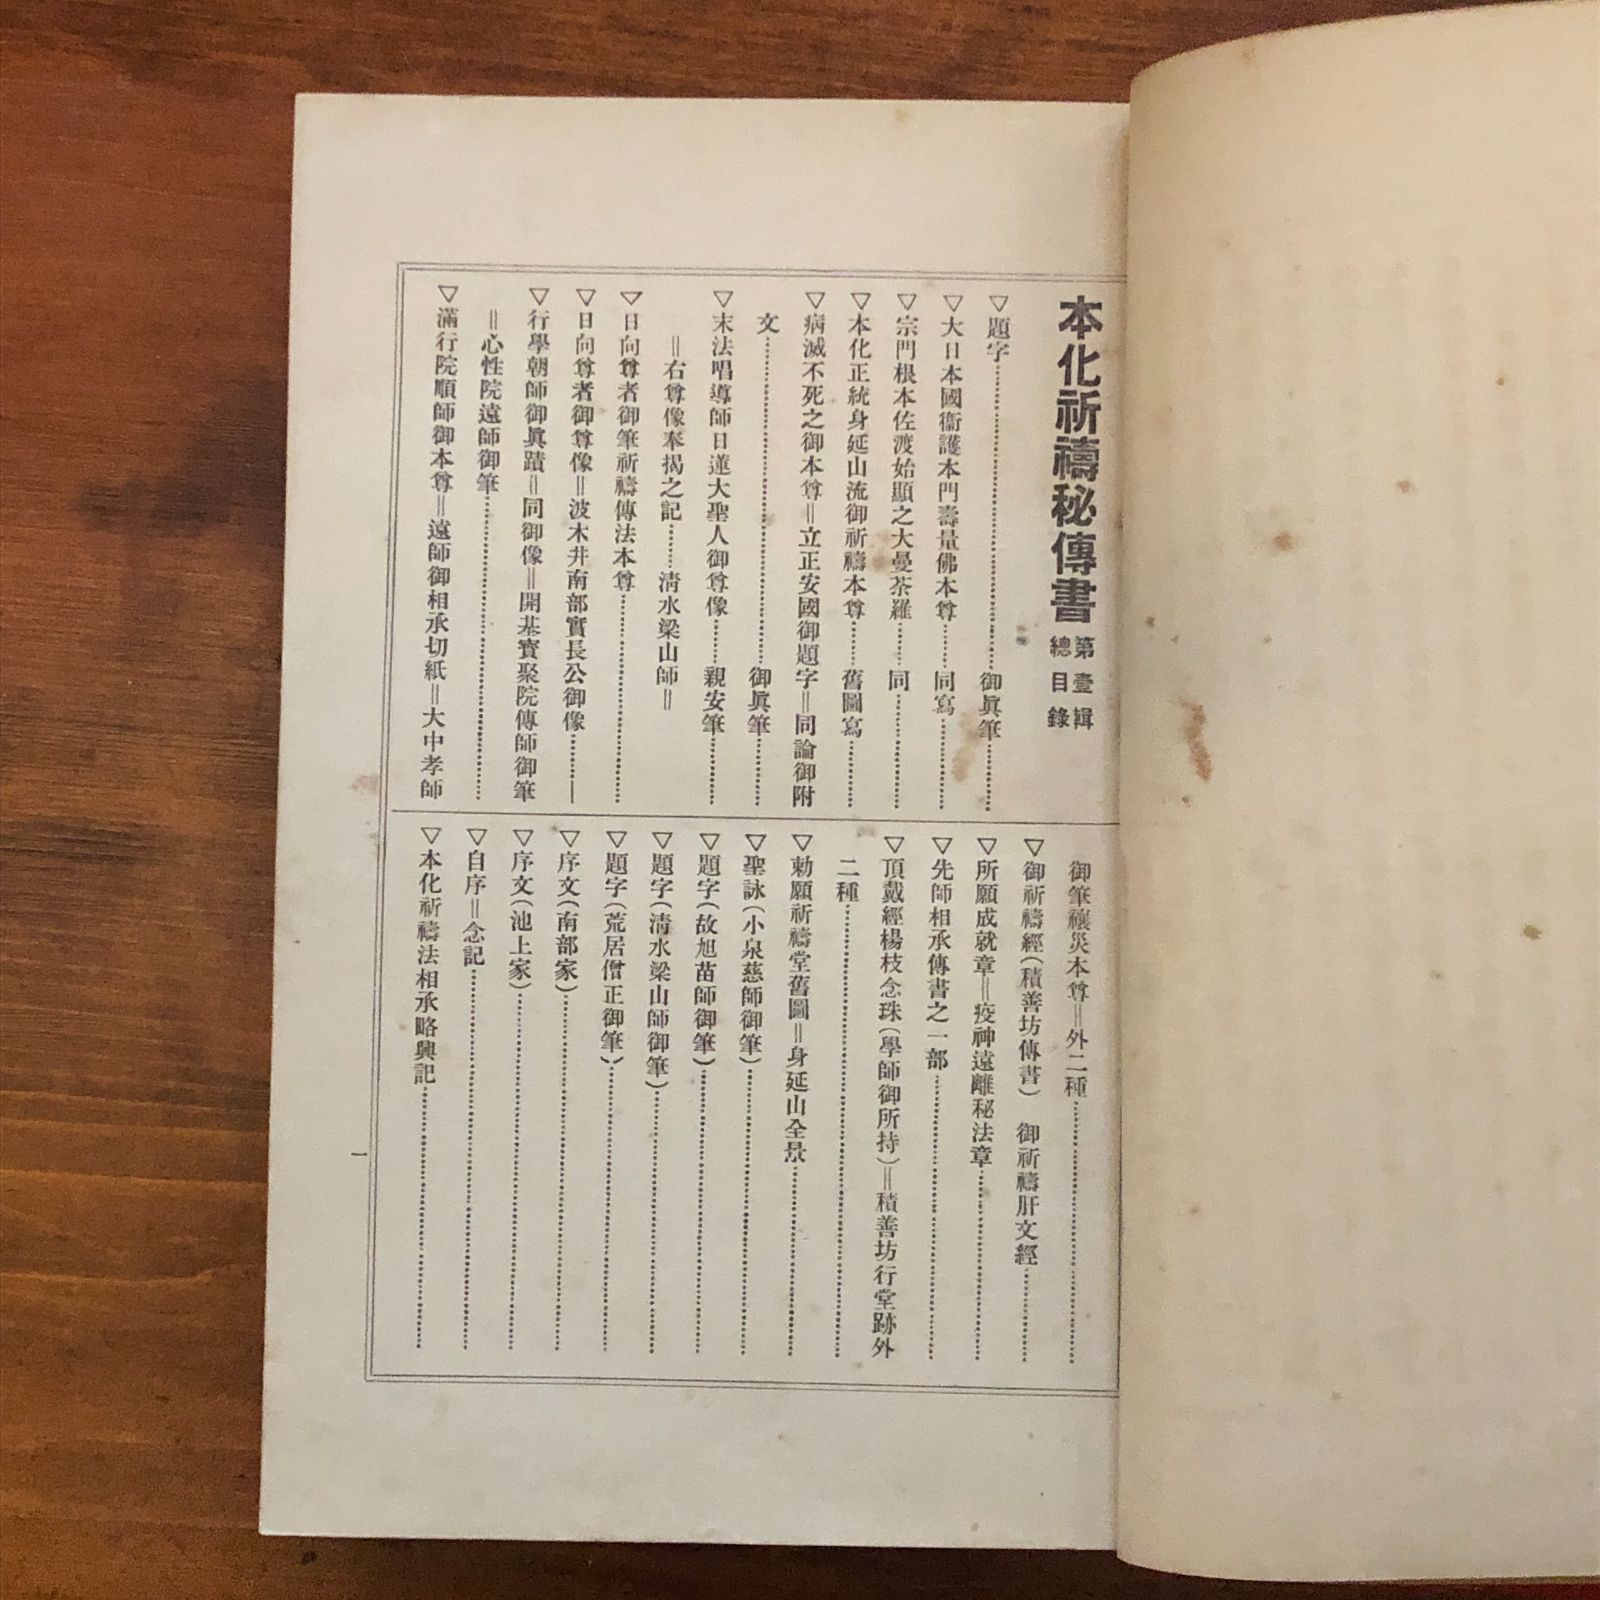 本化祈禱秘傳書 第壹輯 總目錄
▽題字…………御眞筆……
▽大日本國衞護本門壽量佛本尊……同寫……
▽宗門根本佐渡始顯之大曼荼羅……同……
▽本化正統身延山流御祈禱本尊……舊圖寫……
▽病滅不死之御本尊＝立正安國御題字＝同論御附
文…………御眞筆……
▽末法唱導師日蓮大聖人御尊像……親安筆……
＝右尊像奉揭之記……淸水梁山師＝
▽日向尊者御筆祈禱傳法本尊…………
▽日向尊者御尊像＝波木井南部實長公御像……—
▽行學朝師御眞蹟＝同御像＝開基寶聚院傳師御筆
＝心性院遠師御筆…………
▽滿行院順師御本尊＝遠師御相承切紙＝大中孝師
御筆禳災本尊＝外二種…………
▽御祈禱經（積善坊傳書）　御祈禱肝文經……
▽所願成就章＝疫神遠離秘法章…………
▽先師相承傳書之一部…………
▽頂戴經楊枝念珠（學師御所持）＝積善坊行堂跡外
二種…………
▽勅願祈禱堂舊圖＝身延山全景…………
▽聖詠（小泉慈師御筆）…………
▽題字（故旭苗師御筆）…………
▽題字（淸水梁山師御筆）…………
▽題字（荒居僧正御筆）…………
▽序文（南部家）…………
▽序文（池上家）…………
▽自序＝念記…………
▽本化祈禱法相承略興記…………
一